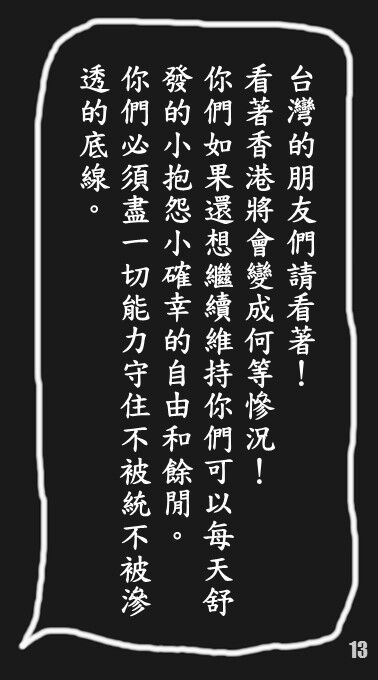 台灣的朋友們請看著！
看著香港將會變成何等慘況！
你們如果還想繼續維持你們可以每天舒
發的小抱怨小確幸的自由和餘閒。
你們必須盡一切能力守住不被統不被滲
透的底線。
13